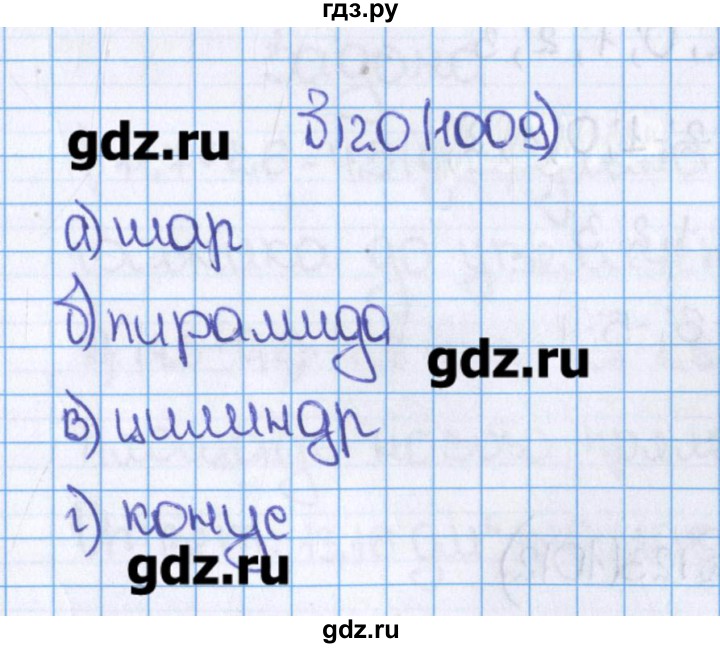 гдз.ру
gdz.ru
320(1009)
а) шар
б) пирамида
gdz.ru
в) цилиндр
г) конус
gdz.ru
gdz.ru